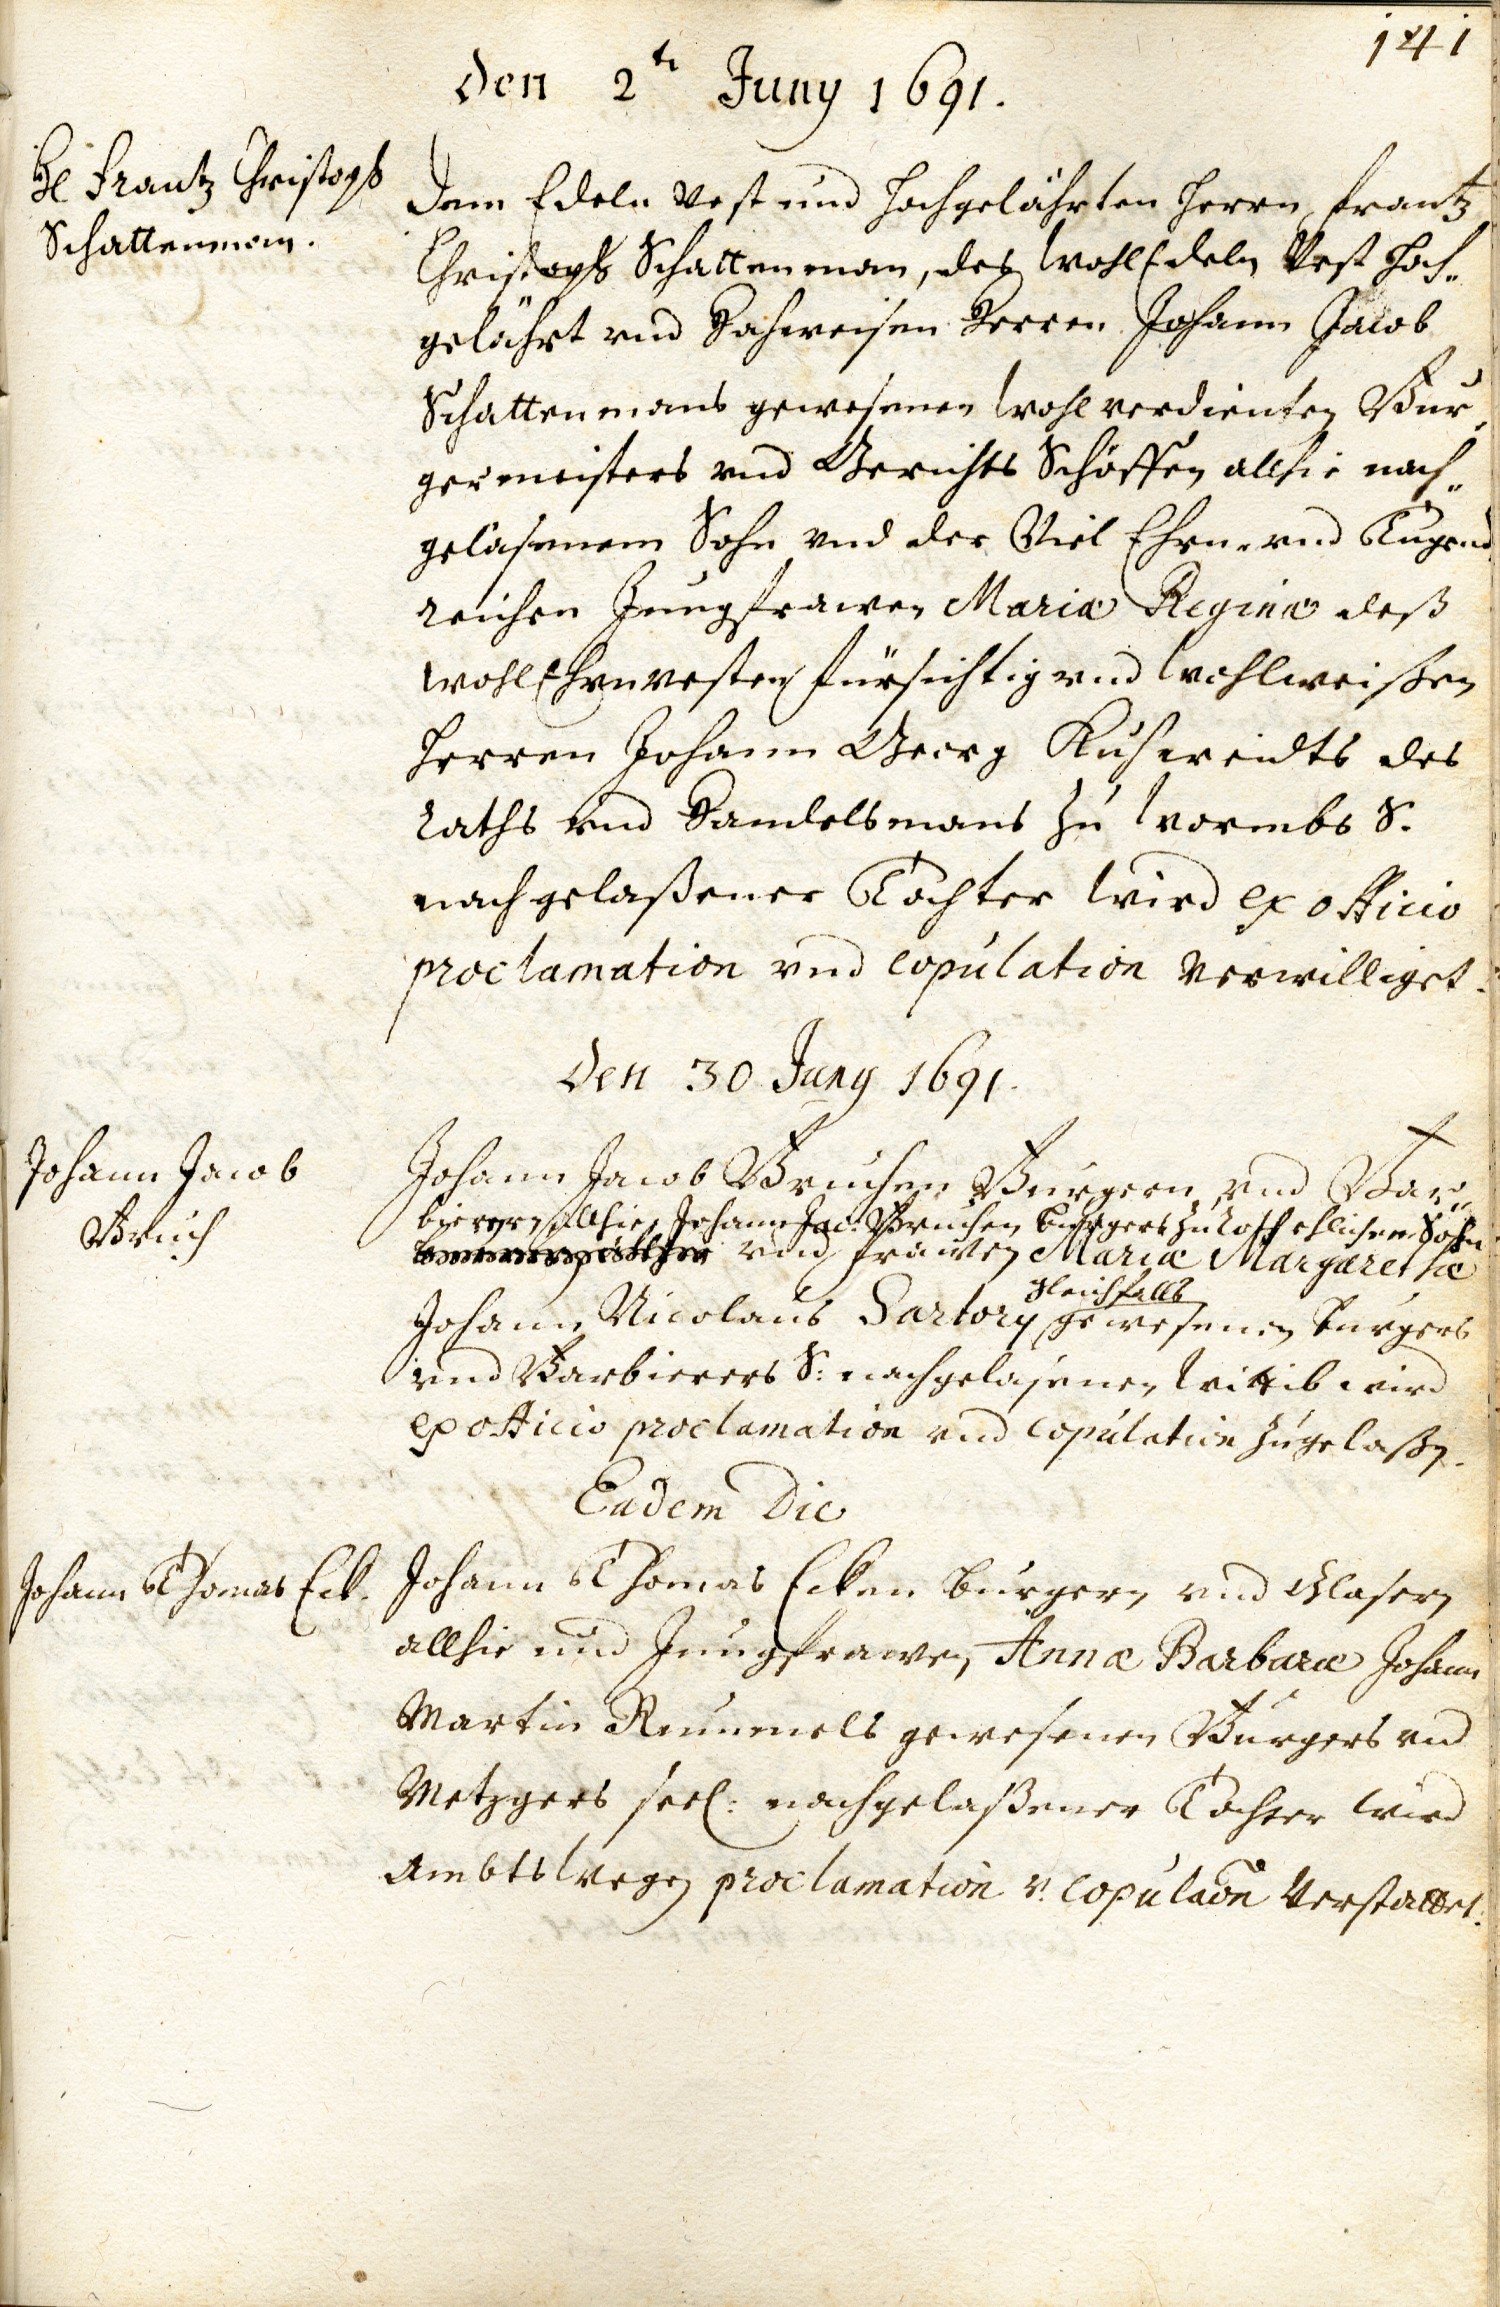 141
Den 2tn Juny 1691.
H Frantz Christoph
Schattenman.
Dem Edeln Vest und Hochgelährten Herrn Frantz
Christoph Schattenman, des WohlEdeln Vest Hoch-
gelährt vnd Hochweisen Herren Johann Jacob
Schattenmans gewesenen Wohlverdienten Bur-
germeisters vnd Gerichts Schöffen allhie nach-
gelasenem Sohn vnd der Viel Ehrn- vnd Tugend
reichen Jungfrawen Mariæ Reginæ deß
WohlEhrnvesten fürsichtig vnd Wohlweißen
Herren Johann Georg Kuhweidts des
Raths vnd Handelsmans zu Wormbs S.
nachgelaßener Tochter Wird ex officio
proclamation vnd copulation verwilliget.
Den 30 Juny 1691.
Johann Jacob
Bruch
Johann Jacob Bruchen Burgern vnd Bar-
bierern allhie, Johann Jac: Bruchen burgers zu ehlichem Sohn
vnd frawen Mariæ Margarethæ
gleichfalls
Johann Nicolaus Sartory gewesenen burgers
vnd Barbierers S: nachgelasenen Wittib wird
ex officio proclamation vnd copulation zugelaßen.
Eadem Die
Johann Thomas Eck.
Johann Thomas Ecken burgern vnd Glasern
allhie und Jungfrawen Annæ Barbaræ Johann
Martin Rummels gewesenen Burgers vnd
Metzgers seel: nachgelaßener Tochter Wird
AmbtsWegen proclamation v. copulaōn Verstattet.